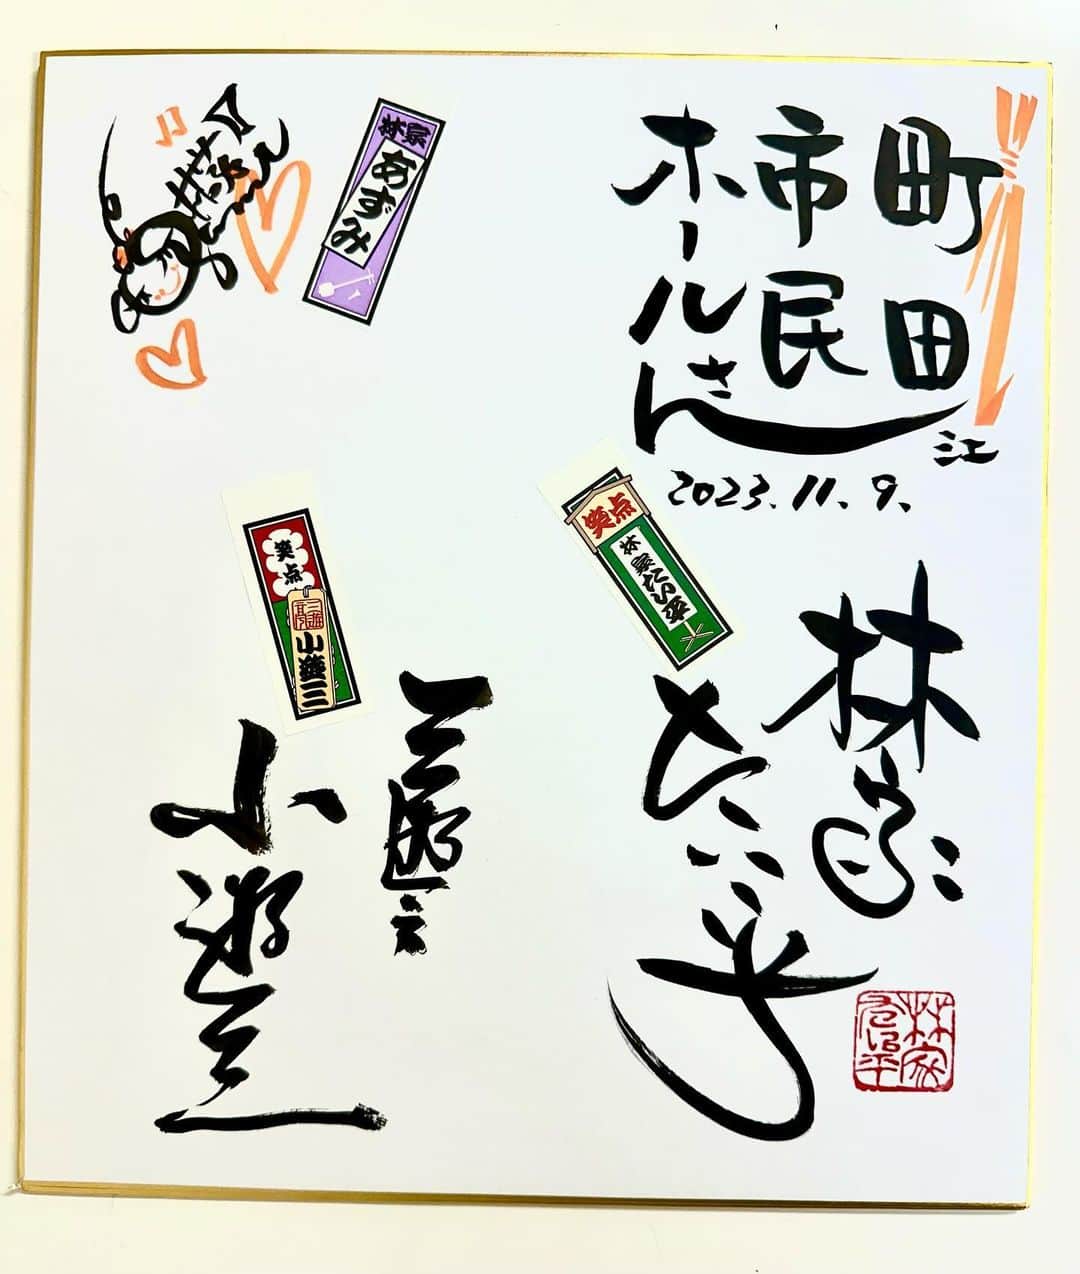 町田
市民
ホール
さん
江
2023.11.9.
林家
たい平
笑点
林家たい平
林家
たい平
三遊亭
小遊三
笑点
三遊亭
小遊三
林家
あずみ